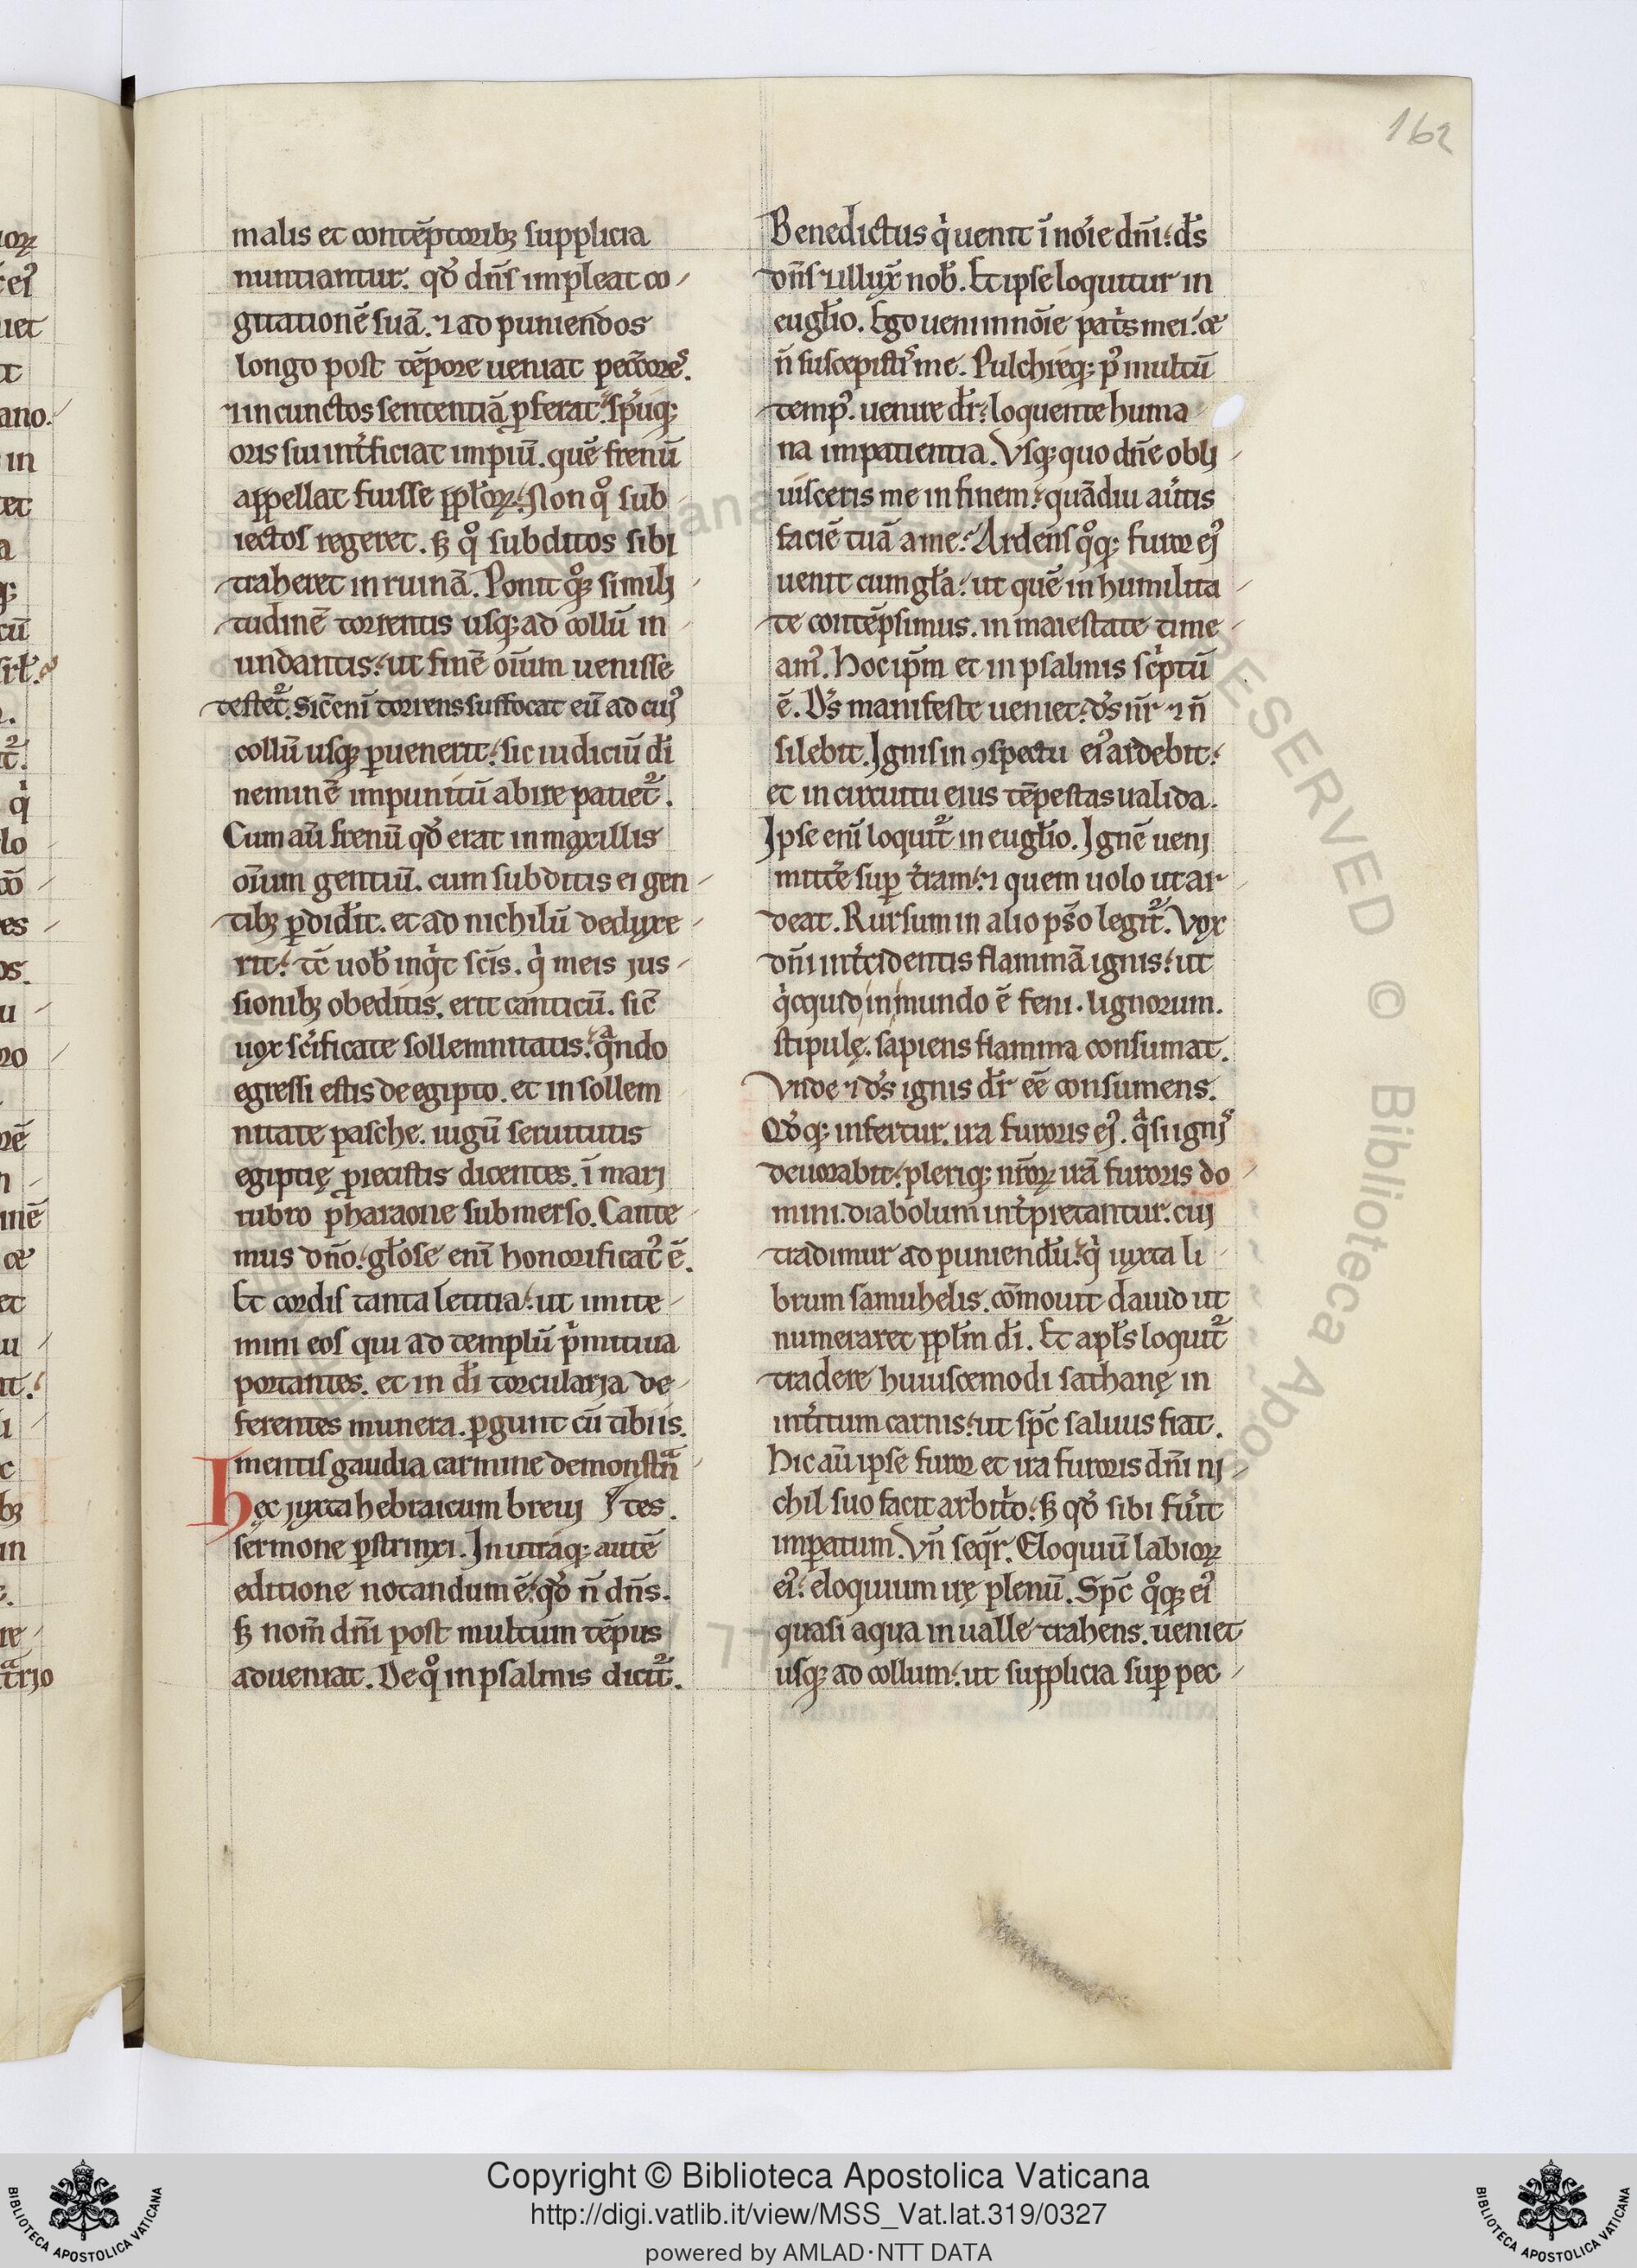 162
malis et contēptorib; supplicia
nuntiantur. qd̓ dn̄s impleat co
gitationē suā. ⁊ ad puniendos
longo post tēpore ueniat peccores.
⁊ in cunctos sententiā ꝓferat. sp̄uq;
oris sui int̓ficiat impiū. quē frenū
appellat fuisse ppl̓oꝝ. Non qͦ sub
iectos regeret. sꝫ qͦ subditos sibi
traheret in ruinā. Ponit qͦꝫ simili
tudinē torrentis usq; ad collū in
undantis. ut finē oīum uenisse
testet̄. Sic enī torrens suffocat eū ad cuiꝰ
collū usq; puenerit. sic iudiciū dī
neminē impunitū abire patiet̄.
Cum aū frenū qd̓ erat in maxillis
oīum gentiū. cum subditis ei gen
tib; pdidit. et ad nichilū deduxe
rit. tc̄ uob̄ inqͥt sc̄is. qͥ meis jus
sionib; obeditis. erit canticū. sic̄
uox sc̄ificate sollemnitatis. qͣndo
egressi estis de egipto. et in sollem
nitate pasche. iugū seruitutis
egiptię piecistis dicentes. ī mari
rubro pharaone submerso. Cante
mus dn̄o. gl̓ose enī honorificatꝰ ē.
Et cordis tanta letitia. ut imite
mini eos qui ad templū pͥmitiua
portantes. et in dī torcularia de
ferentes munera. pgunt cū tibiis.
mentis gaudia carmine demonstrā
hęc juxta hebraicum breui tes.
sermone pstrinxi. In utraq; autē
editione notandum ē. qd̓ n̄ dn̄s.
sꝫ nom̄ dn̄i post multum tēpus
adueniat. De qͦ in psalmis dicit̄.
Benedictus qͥ uenit ī noīe dn̄i. d̄s
dn̄s ⁊ illux̄ nob̄. Et ipse loquitur in
eugl̓io. Ego ueni in noīe pat̓s mei. et
n̄ suscepistis me. Pulchreq; p̱ multū
tempꝰ. uenire dr̄. loquente huma
na impatientia. Vsq; quo dn̄e obli
uisceris me in finem. quādiu au̓tis
faciē tuā a me. Ardens qͦq; furor eiꝰ
uenit cum gl̓a. ut quē in humilita
te contēpsimus. in maiestate time
amꝰ. Hoc ip̄m et in psalmis sc̓ptū
ē. D̄s manifeste ueniet. d̄s nr̄ ⁊ n̄
silebit. Ignis in ꝯspectu eiꝰ ardebit.
et in circuitu eius tēpestas ualida.
Ipse enī loquit̄ in eugl̓io. Ignē ueni
mitt̓e sup t̓ram. ⁊ quem uolo ut ar
deat. Rursum in alio ps̄o legit̄. Vox
dn̄i int̓cidentis flammā ignis. ut
qͥcquid in mundo ē feni. lignorum.
stipulę. sapiens flamma consumat.
Vnde ⁊ d̄s ignis dr̄ eē consumens.
Qd̓q; infertur. ira furoris eiꝰ. qͣsi ignis
deuorabit. pleriq; nr̄oꝝ irā furoris do
mini. diabolum int̓pretantur. cui
tradimur ad puniendū. qͥ iuxta li
brum samuhelis. cōmouit dauid ut
numeraret ppl̄m dī. Et apl̓s loquit̄
tradere huiuscemodi sathanę in
int̓itum carnis. ut sp̄c saluus fiat.
Hic aū ipse furor et ira furoris dn̄i ni
chil suo facit arbit̓o. sꝫ qd̓ sibi fu̓it
impatum. Vn̄ seqr̄. Eloquiū labioꝝ
eiꝰ. eloquium irę plenū. Sp̄c qͦq; eiꝰ
quasi aqua in ualle trahens. ueniet
usq; ad collum. ut supplicia sup pec
Copyright © Biblioteca Apostolica Vaticana
http://digi.vatlib.it/view/MSS_Vat.lat.319/0327
powered by AMLAD·NTT DATA
BIBLIOTECA APOSTOLICA VATICANA
BIBLIOTECA APOSTOLICA VATICANA